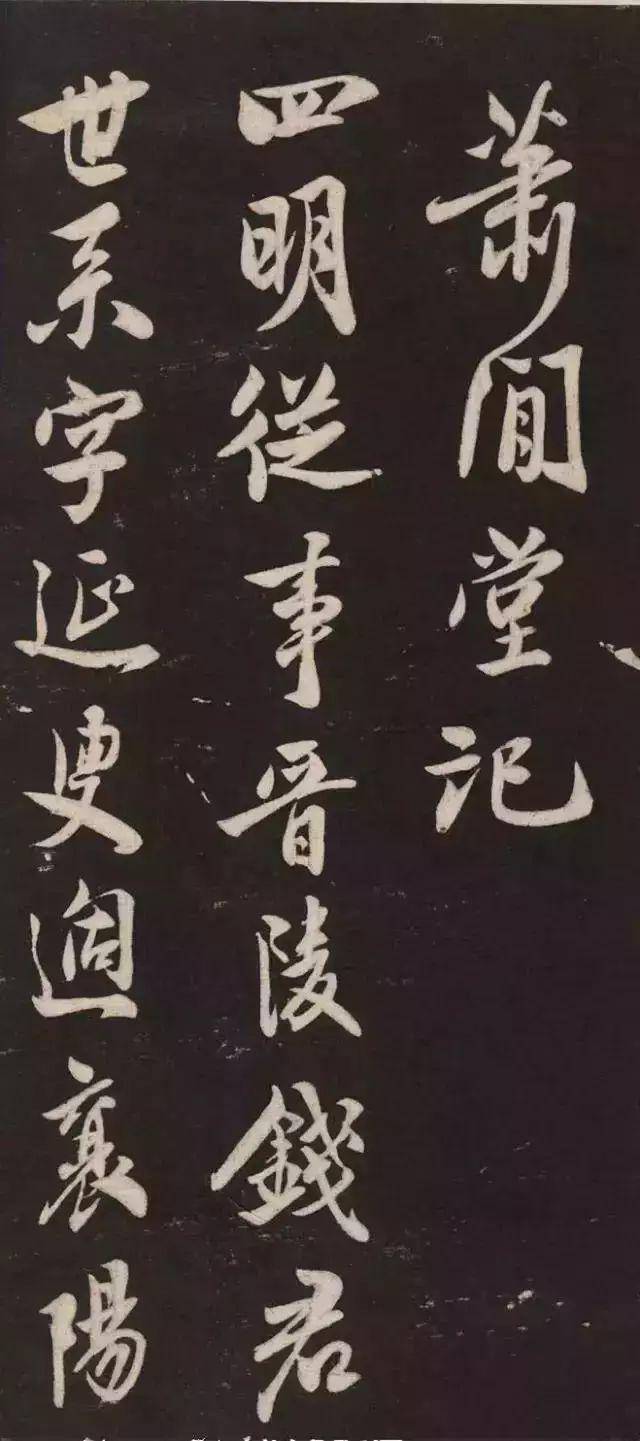 蕭閒堂記
四明從事晉陵錢君
世系字延叟適襄陽